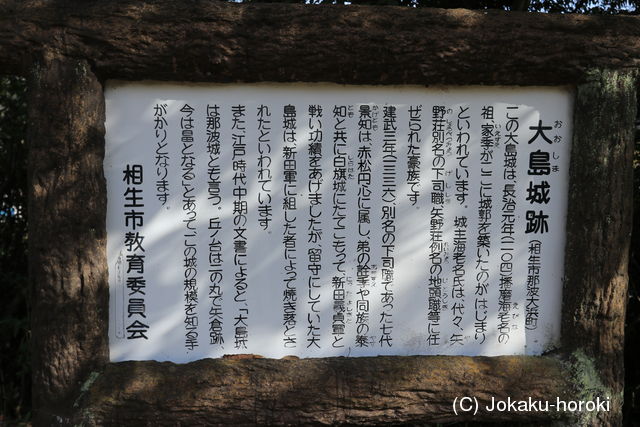 大島城跡(相生市那波大浜町)
おおしま
この大島城は、長治元年(一一〇四)播磨海老名の
祖、家季がここに城郭を築いたのがはじまり
いえすえ
といわれています。城主海老名氏は、代々、矢
野荘別名の下司職、矢野荘例名の地頭職等に任
ぜられた豪族です。
建武三年(一三三六)、別名の下司職であった七代
景知は、赤松円心に属し、弟の詮季や同族の泰
知と共に白旗城にたてこもって、新田義貞軍と
戦い功績をあげましたが、留守にしていた大
島城は、新田軍に組した者によって焼き落とさ
れたといわれています。
また、江戸時代中期の文書によると、「大島城
は那波城とも言う。丘ノ台は二の丸で矢倉跡
今は畠となる」とあって、この城の規模を知る手
がかりとなります。
相生市教育委員会
(C) Jokaku-horoki